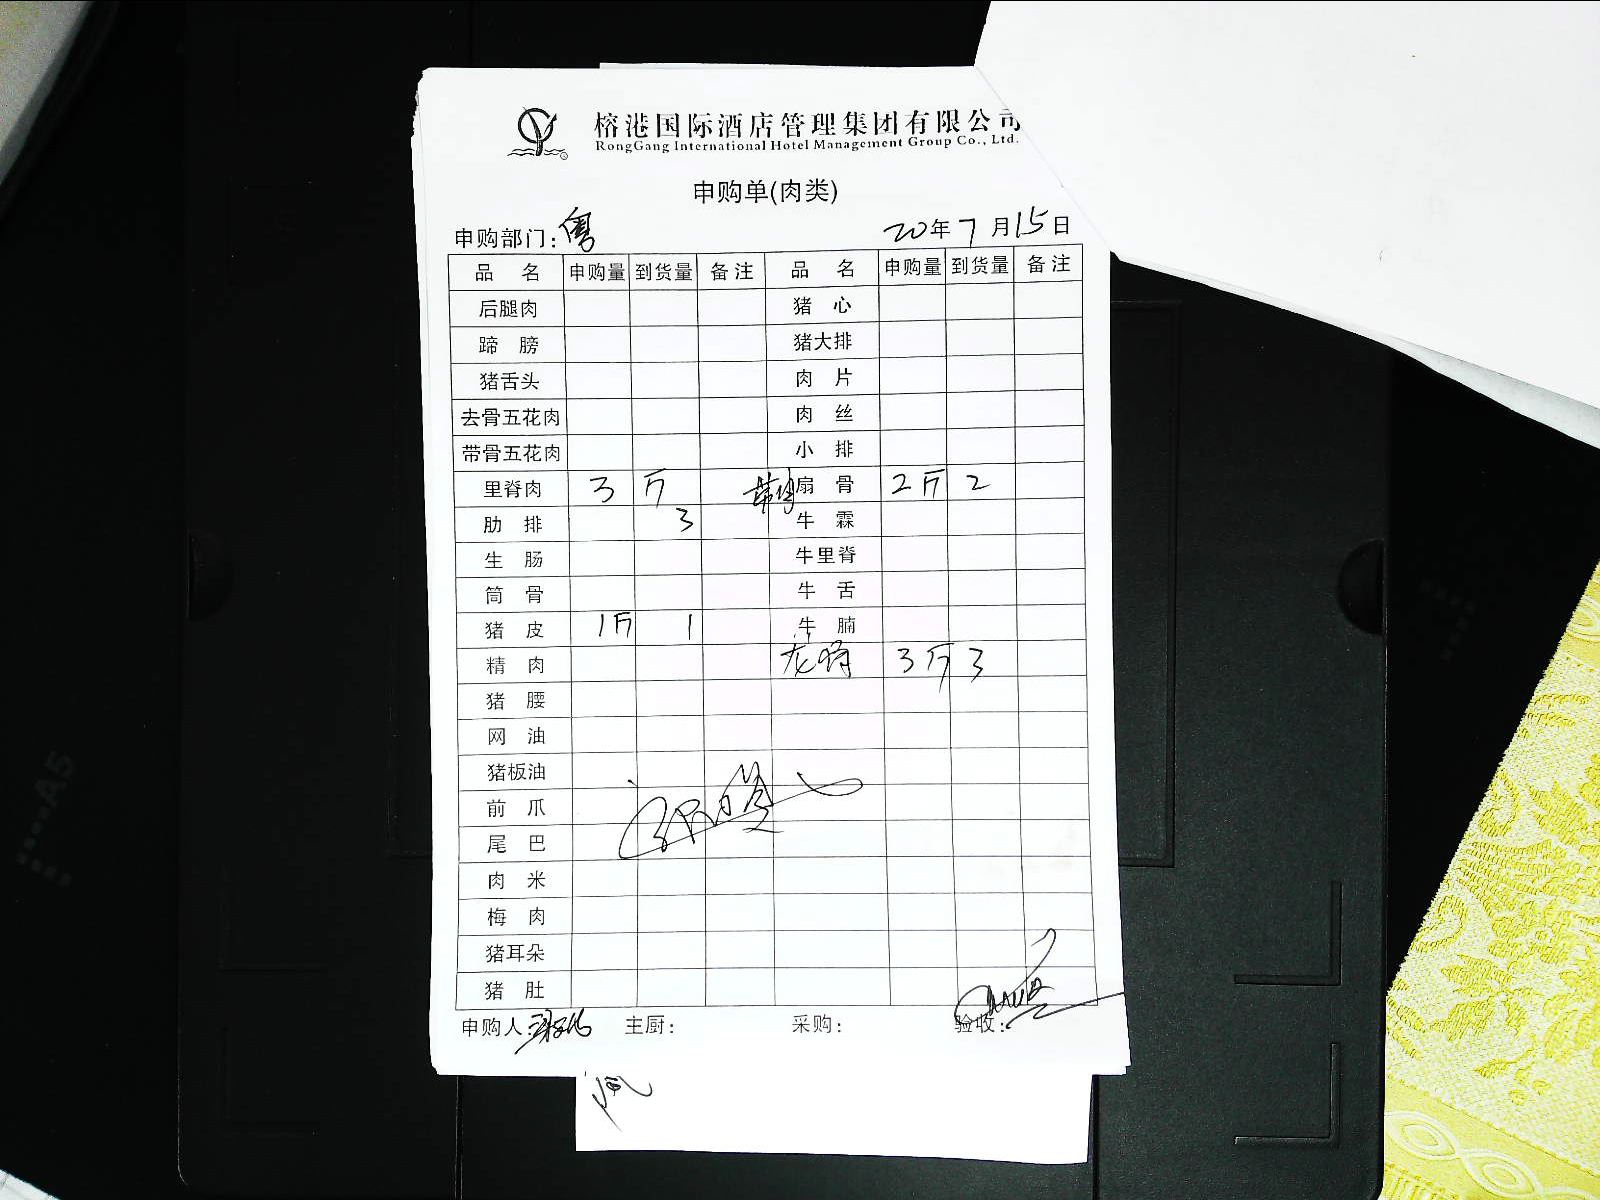 榕港国际酒店管理集团有限公司
RongGang International Hotel Management Group Co., Ltd.
申购单(肉类)
申购部门: 粤 20年7月15日
品 名 申购量 到货量 备注 品 名 申购量 到货量 备注
后腿肉 猪 心
蹄 膀 猪大排
猪舌头 肉 片
去骨五花肉 肉 丝
带骨五花肉 小 排
里脊肉 3斤 扇 骨 2斤 2
肋 排 3 牛 霖
生 肠 牛里脊
筒 骨 牛 舌
猪 皮 1斤 1 牛 腩
精 肉 龙骨 3斤 3
猪 腰
网 油
猪板油
前 爪
尾 巴
肉 米
梅 肉
猪耳朵
猪 肚
申购人: 主厨: 采购: 验收:
A5